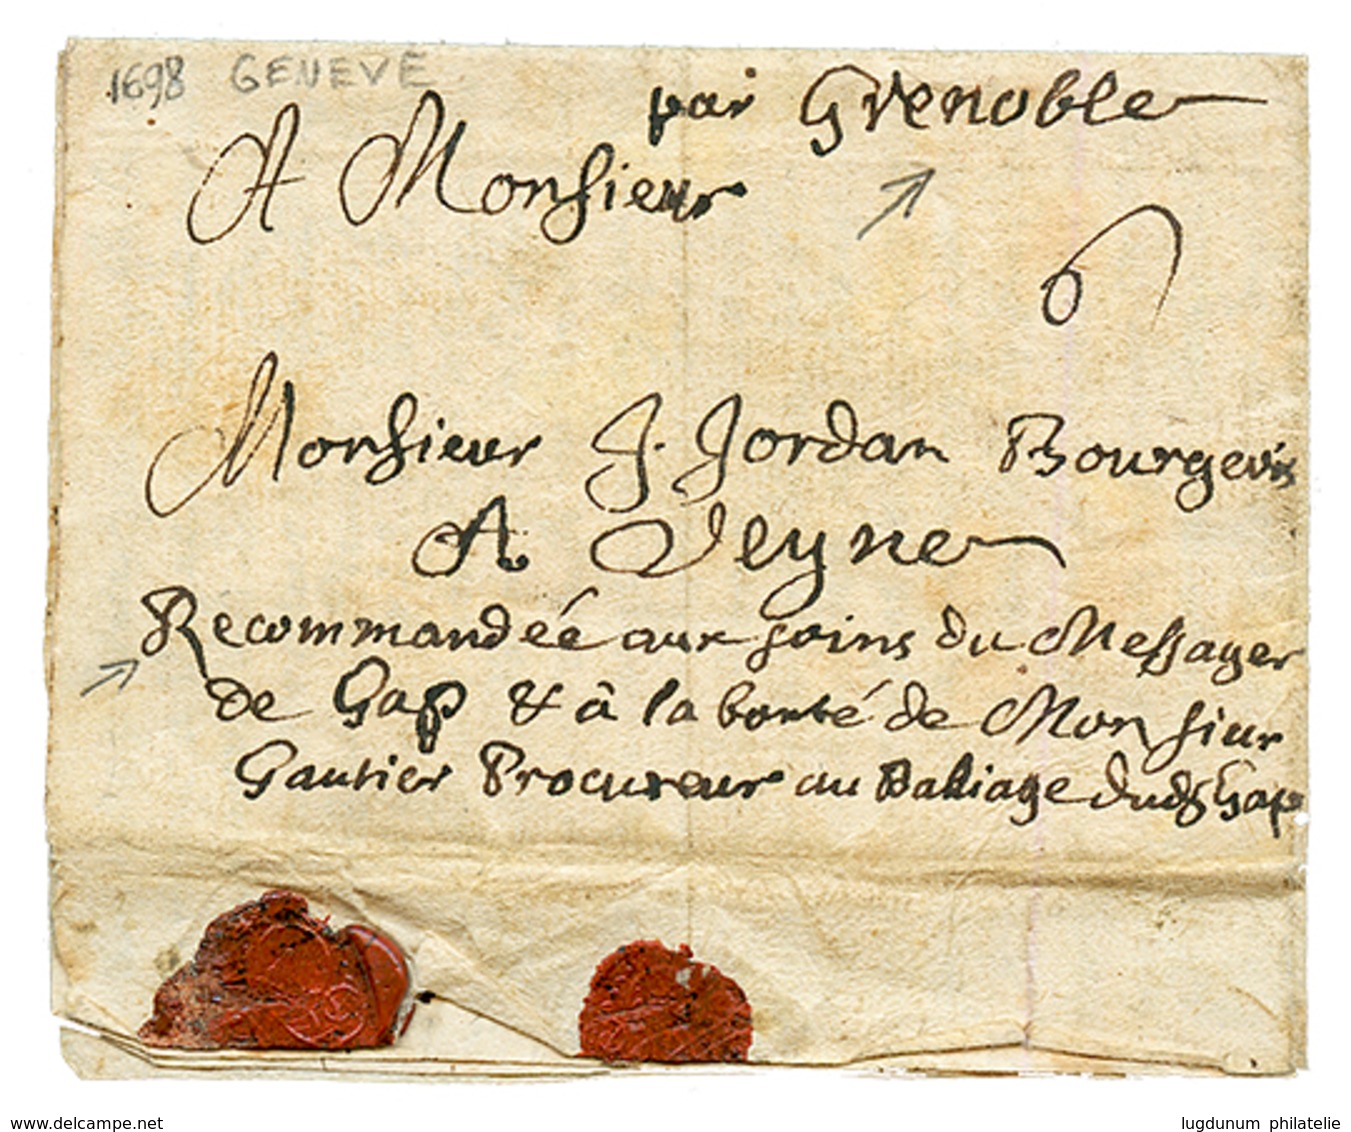 1698 GENEVE
par Grenoble
A Monsieur
6
Monsieur J. Jordan Bourgeois
A Veyne
Recommandée aux soins du Messager
de Gap & à la bonté de Monsieur
Gautier Procureur au Balliage dud Gap
www.delcampe.net
lugdunum philatelie